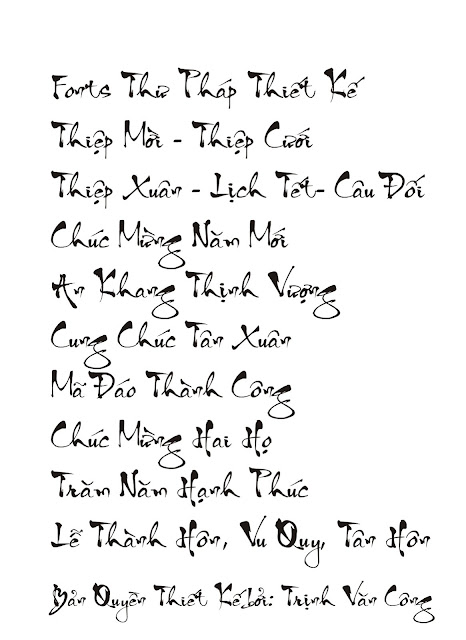 Fonts Thư Pháp Thiết Kế
Thiệp Mời - Thiệp Cưới
Thiệp Xuân - Lịch Tết- Câu Đối
Chúc Mừng Năm Mới
An Khang Thịnh Vượng
Cung Chúc Tân Xuân
Mã Đáo Thành Công
Chúc Mừng Hai Họ
Trăm Năm Hạnh Phúc
Lễ Thành Hôn, Vu Quy, Tân Hôn
Bản Quyền Thiết Kế bởi: Trịnh Văn Công